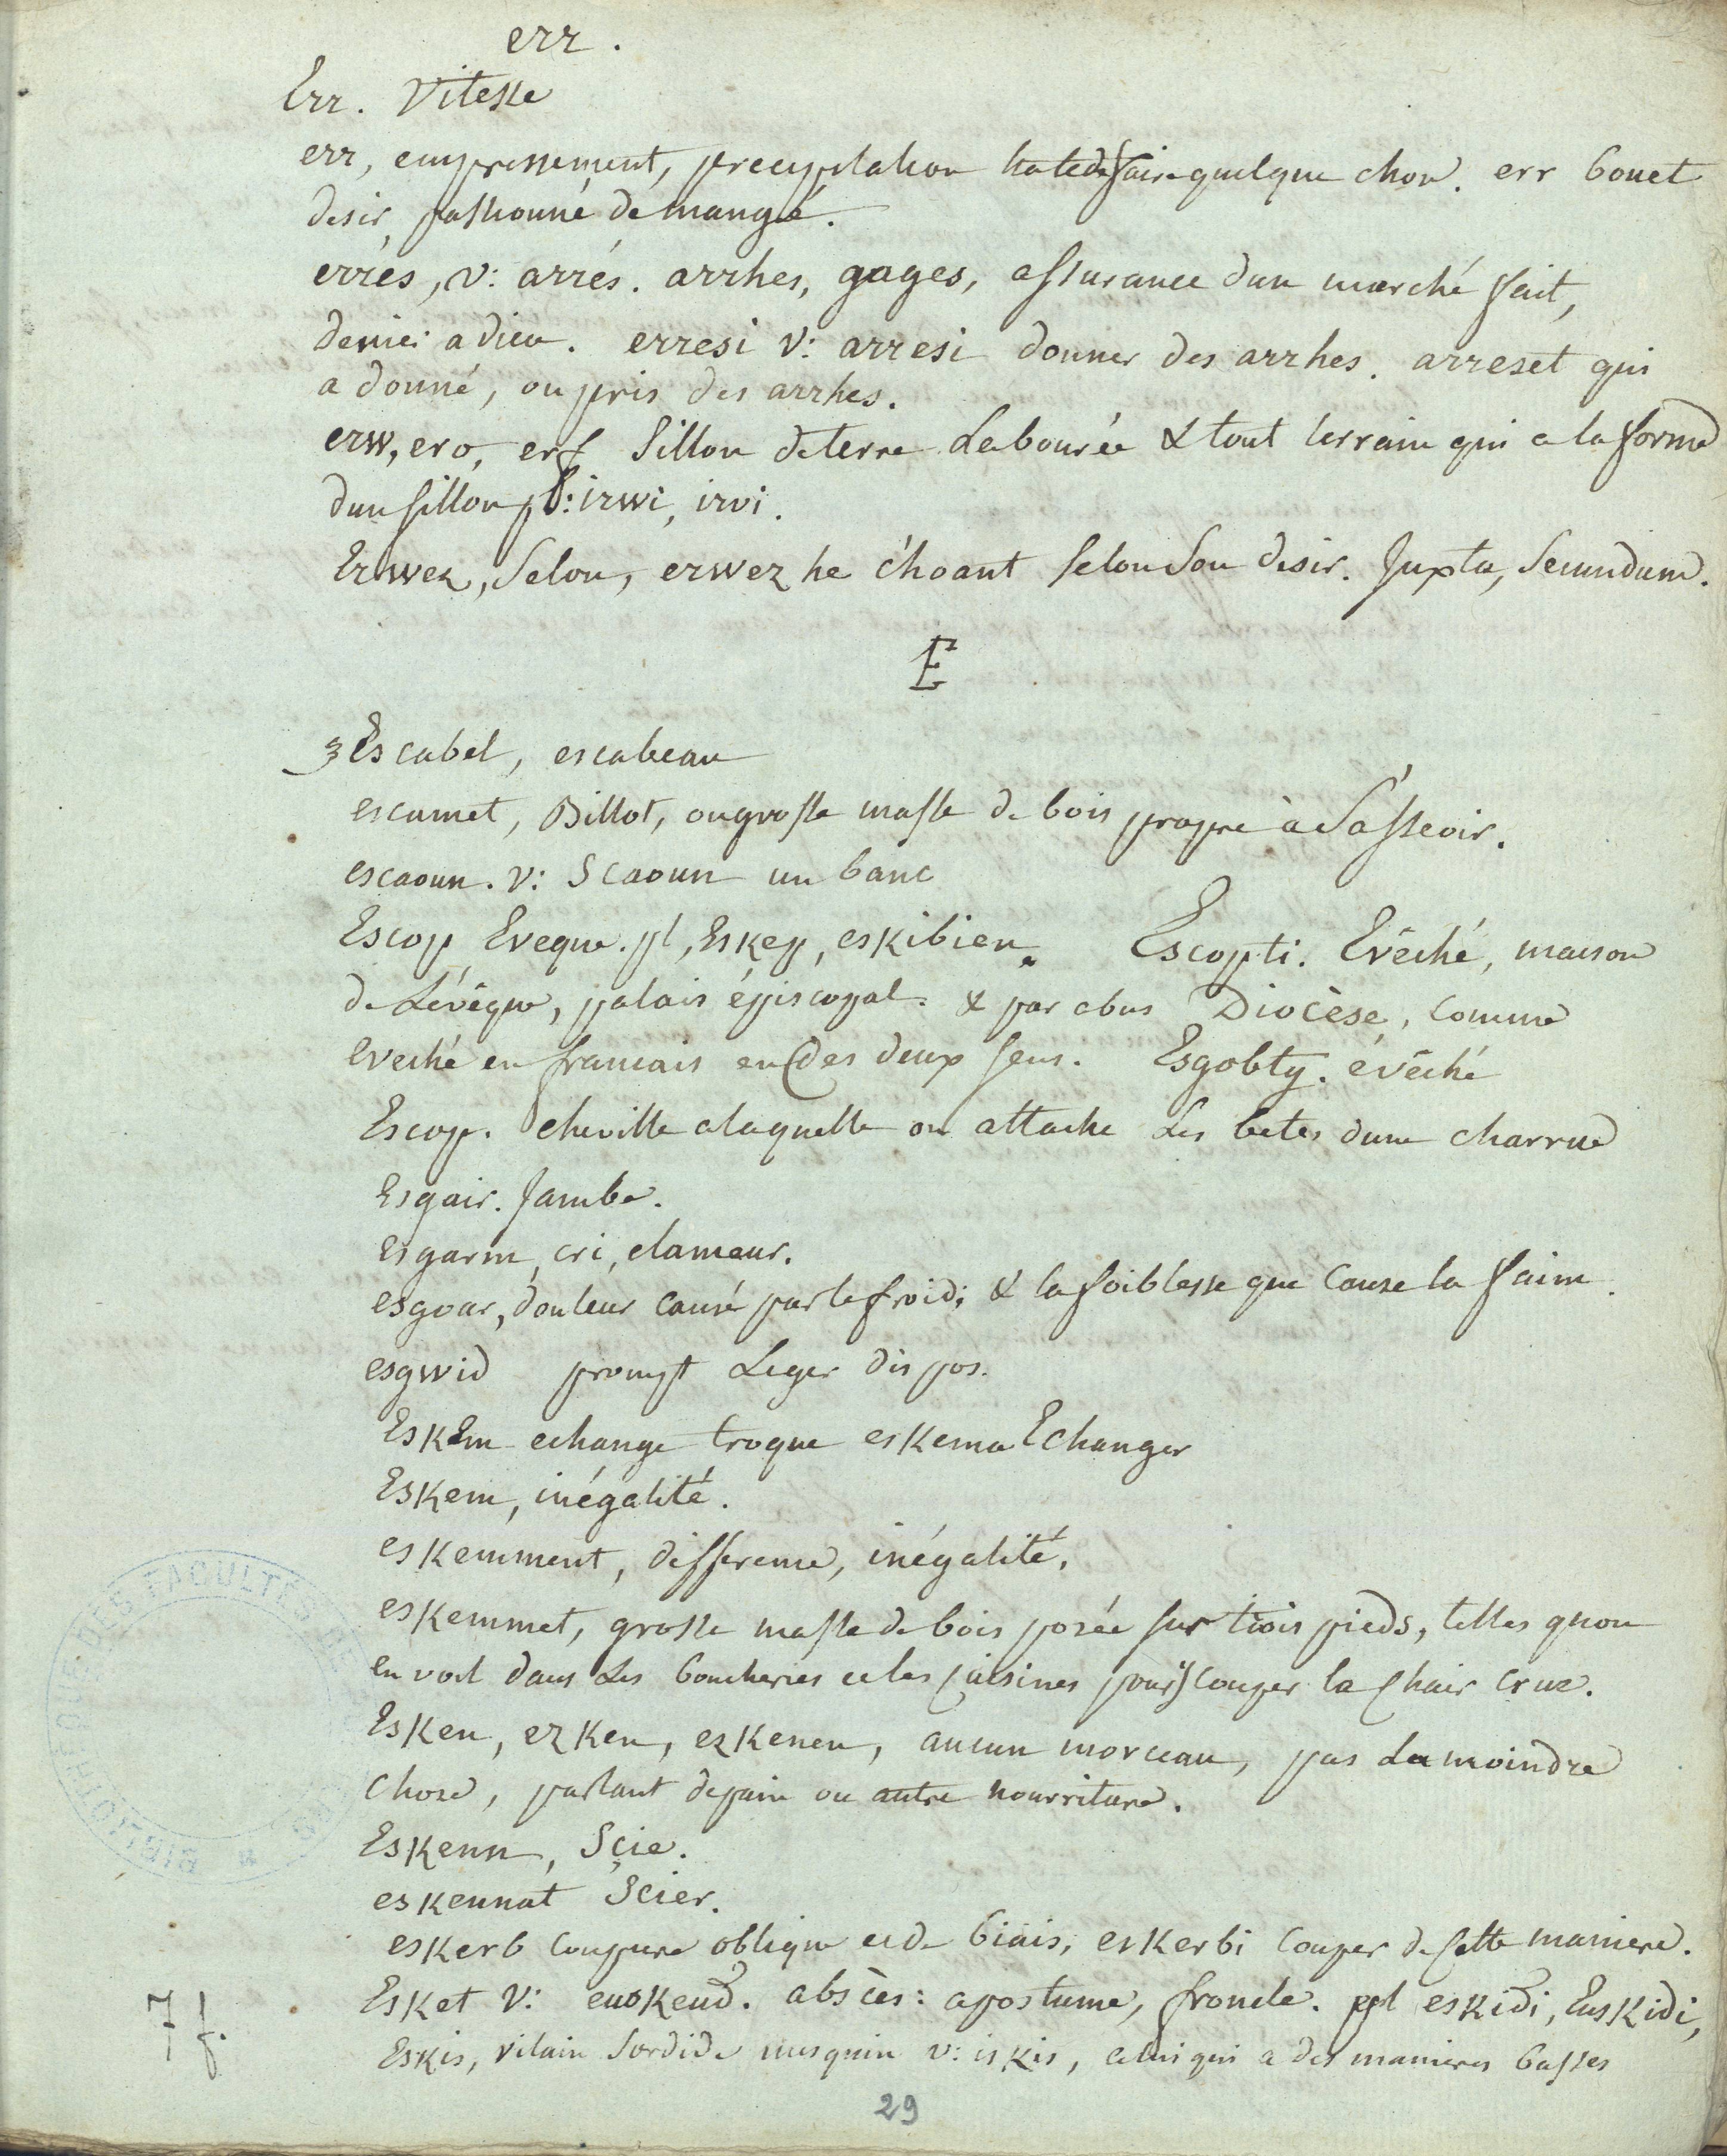 err.
Err. Vitesse
err, empressement, precipitation hate de faire quelque chose. err bouet
desir passionné de mangé.
errés, v: arrés. arrhes, gages, assurance dun marché fait,
denier a dieu. erresi v: arresi donner des arrhes. arreset qui
a donné, ou pris des arrhes.
erw, ero, erf Sillon de terre Labourée & tout terrain qui a la forme
dun sillon pl: irwi, irvi.
Erwez, Selon, erwez he c'hoant selon son desir. Juxta, Secundum.
E
3 Escabel, escabeau
escamet, Billot, ou grosse masse de bois propre à S'asseoir.
escaoun. v: Scaoun un banc
Escop Eveque. pl, Eskep, eskibien. Escopti. Evêché, maison
de Lévêque, palais épiscopal. & par abus Diocèse, comme
eveché en francais en des deux sens. Esgobty. évêché
Escop. cheville alaquelle on attache Les betes dune charrue
Esgair. Jambe.
esgarm, cri, clameur.
esgoar, douleur causé par le froid; & la foiblesse que Cause la faim.
esgwid prompt Leger dispos.
EskEm echange troque eskema Echanger
Eskem, inégalité.
eskemment, difference, inégalité.
eskemmet, grosse masse de bois posée sur trois pieds, telles quon
en voit dans Les boucheries et les Cuisines pour couper la Chair crue.
Esken, ezken, ezkenen, aucun morceau, pas La moindre
Chose, parlant de pain ou autre nourriture.
Eskenn, Sçie.
eskennat Scier.
eskerb coupure oblique et de biais, eskerbi couper de Cette maniere.
Esket v: euskeud. absçès: apostume, froncle. pl eskidi, Euskidi,
Eskis, vilain Sordide mesquin v: iskis, celui qui a des manieres basses
7 f.
29
BIBLIOTHEQUE DES FACULTES DE